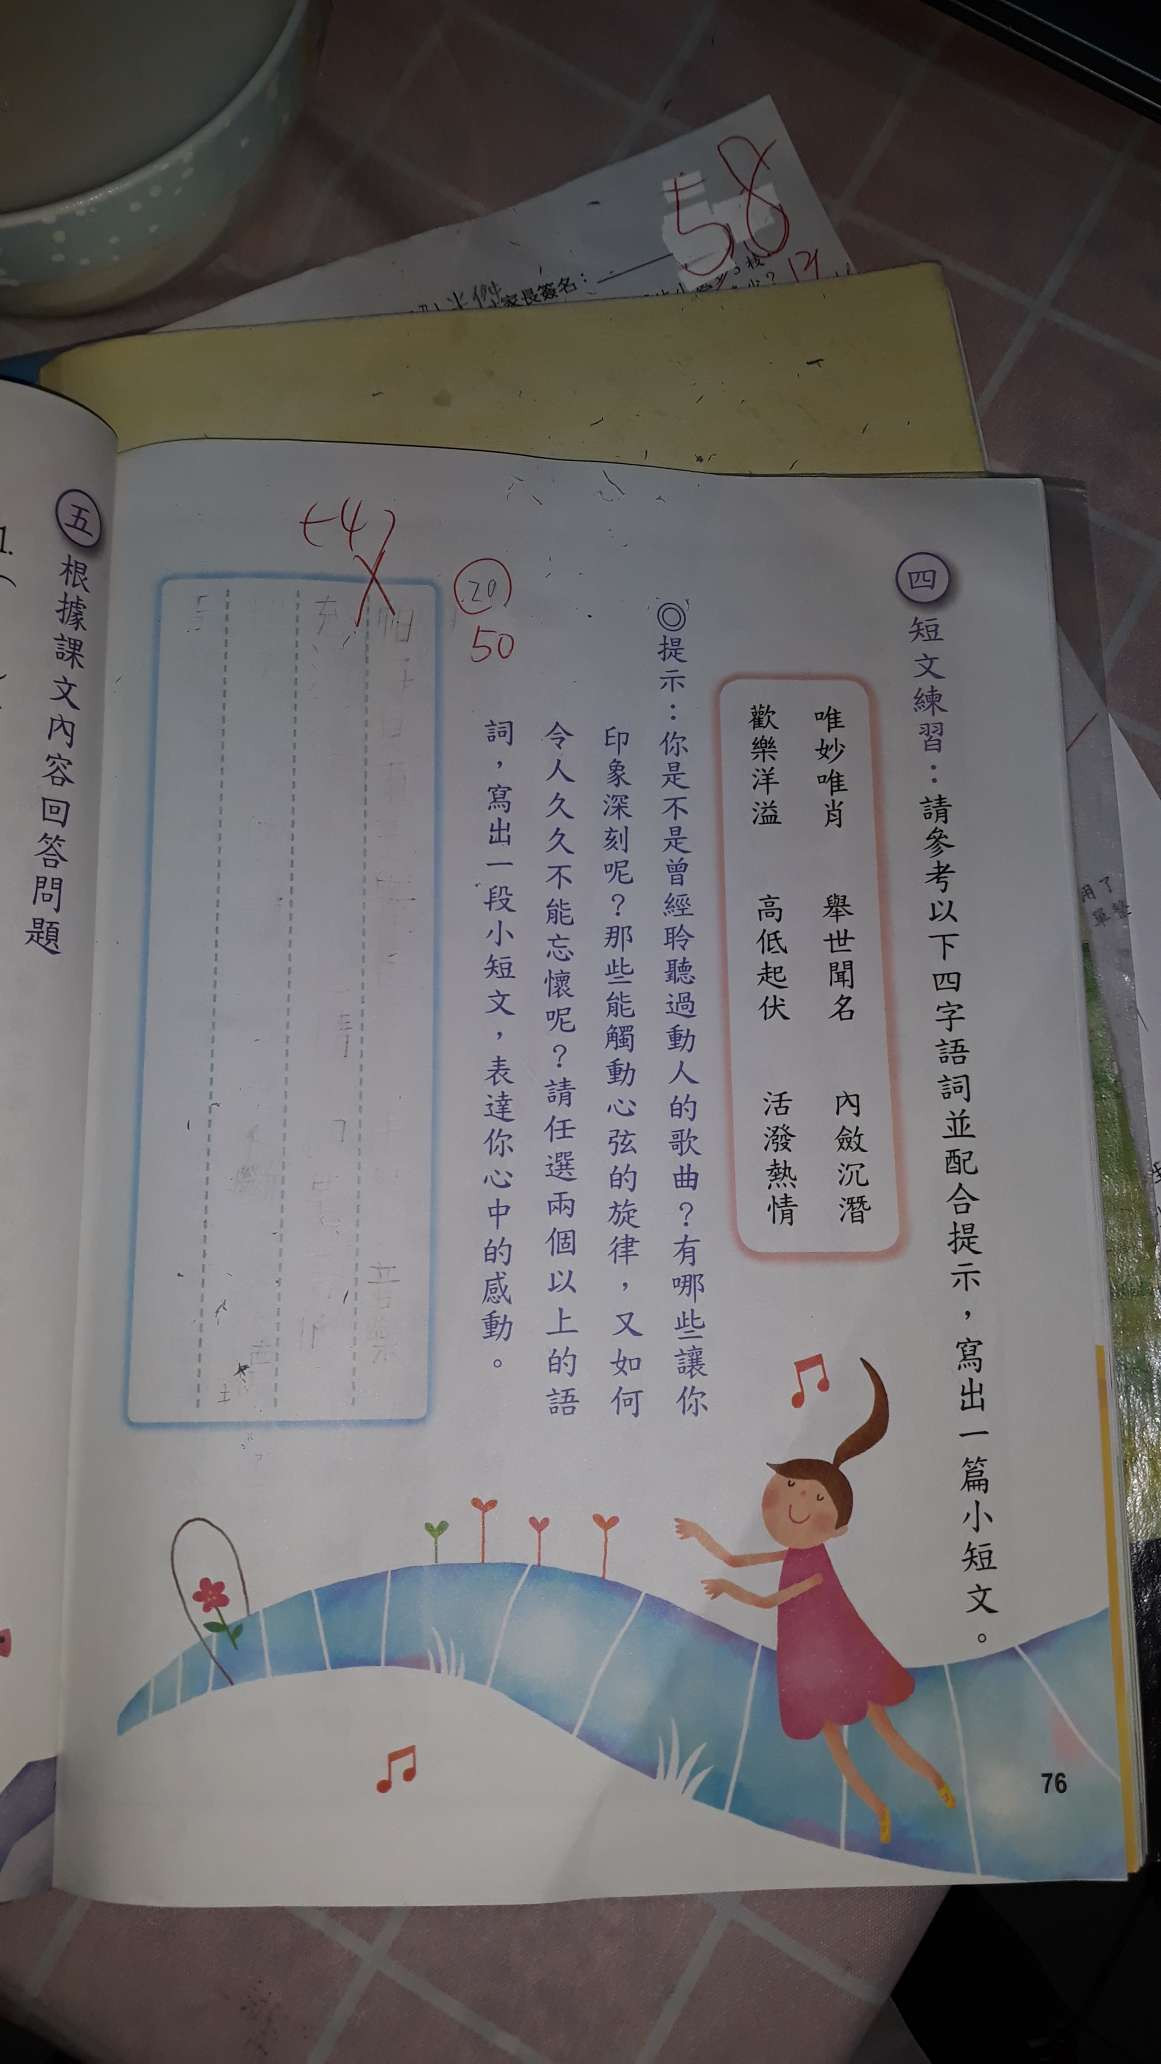 58
家長簽名：
四 短文練習：請參考以下四字語詞並配合提示，寫出一篇小短文。
唯妙唯肖 舉世聞名 內斂沉潛
歡樂洋溢 高低起伏 活潑熱情
◎提示：你是不是曾經聆聽過動人的歌曲？有哪些讓你
印象深刻呢？那些能觸動心弦的旋律，又如何
令人久久不能忘懷呢？請任選兩個以上的語
詞，寫出一段小短文，表達你心中的感動。
20
50
(-4)
76
五 根據課文內容回答問題
1.